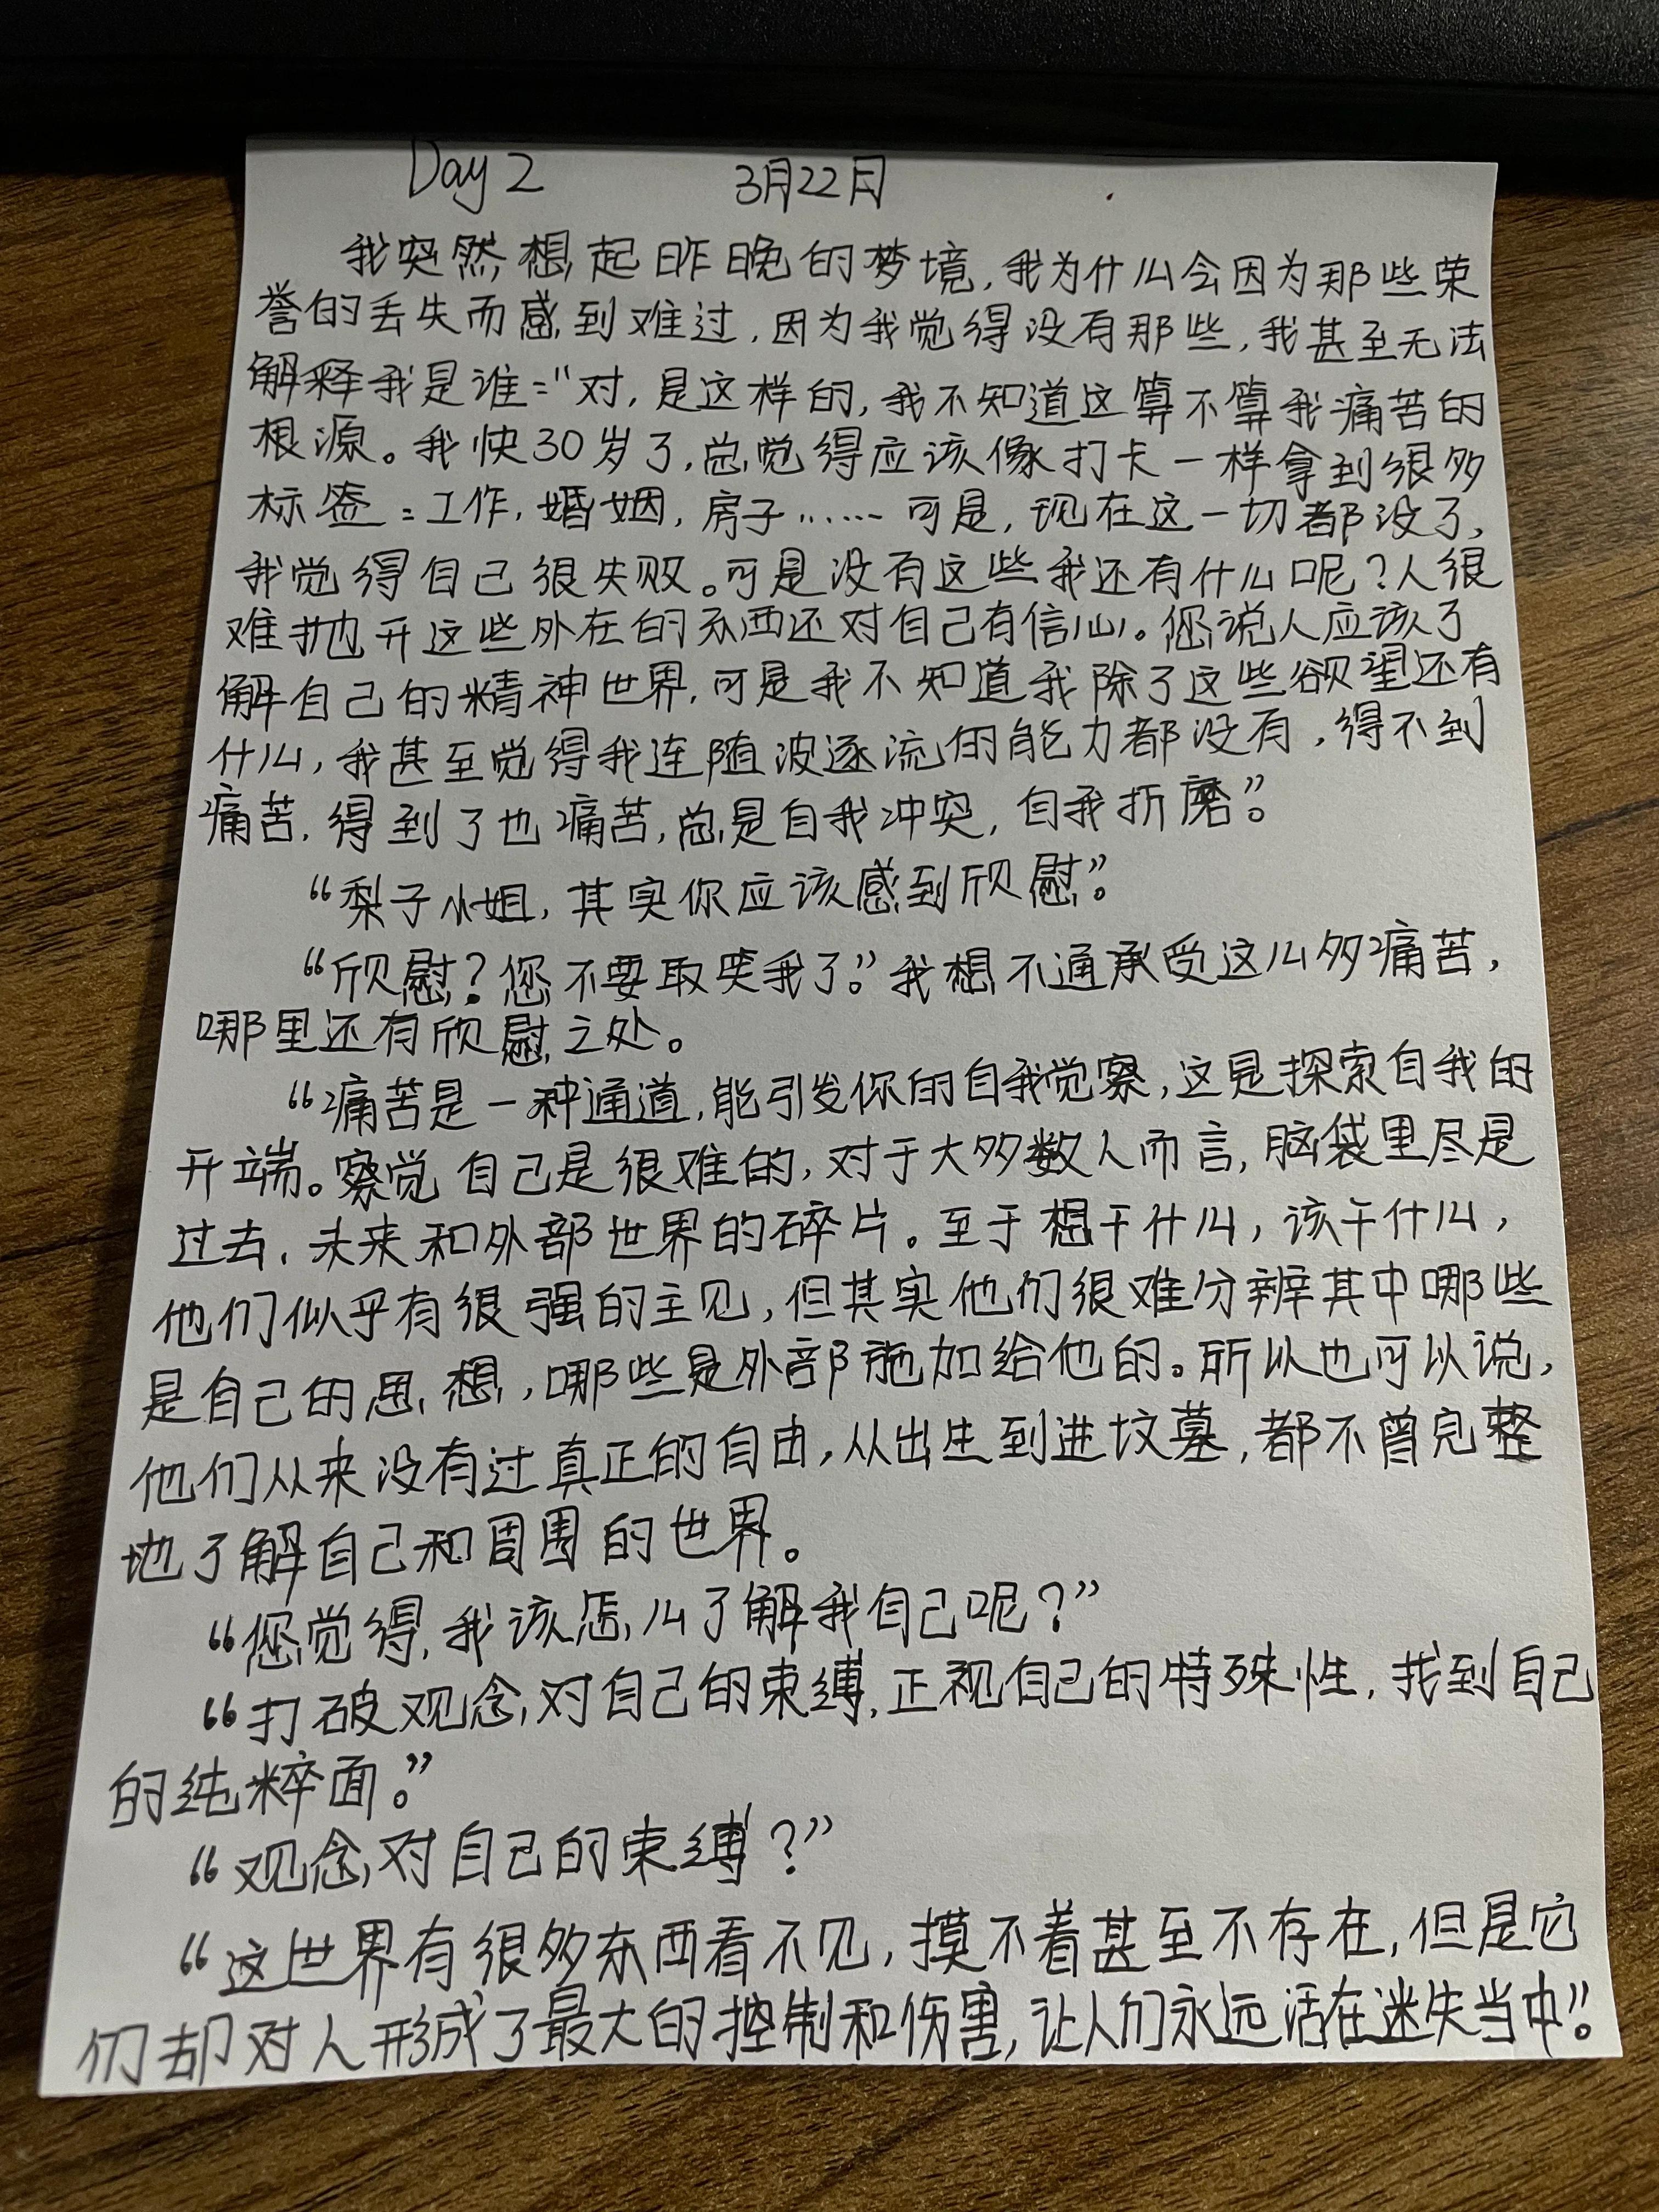 Day 2 3月22日
我突然想起昨晚的梦境,我为什么会因为那些荣
誉的丢失而感到难过,因为我觉得没有那些,我甚至无法
解释我是谁:"对,是这样的,我不知道这算不算我痛苦的
根源。我快30岁了,总觉得应该像打卡一样拿到很多
标签:工作,婚姻,房子……可是,现在这一切都没了,
我觉得自己很失败。可是没有这些我还有什么呢?人很
难抛开这些外在的东西还对自己有信心。您说人应该了
解自己的精神世界,可是我不知道我除了这些欲望还有
什么,我甚至觉得我连随波逐流的能力都没有,得不到
痛苦,得到了也痛苦,总是自我冲突,自我折磨”。
“梨子小姐,其实你应该感到欣慰”。
“欣慰?您不要取笑我了。”我想不通承受这么多痛苦,
哪里还有欣慰之处。
“痛苦是一种通道,能引发你的自我觉察,这是探索自我的
开端。察觉自己是很难的,对于大多数人而言,脑袋里尽是
过去,未来和外部世界的碎片。至于想干什么,该干什么,
他们似乎有很强的主见,但其实他们很难分辨其中哪些
是自己的思想,哪些是外部施加给他的。所以也可以说,
他们从来没有过真正的自由,从出生到进坟墓,都不曾完整
地了解自己和周围的世界。
“您觉得,我该怎么了解我自己呢?”
“打破观念对自己的束缚,正视自己的特殊性,找到自己
的纯粹面。”
“观念对自己的束缚?”
“这世界有很多东西看不见,摸不着甚至不存在,但是它
们却对人形成了最大的控制和伤害,让人们永远活在迷失当中”。